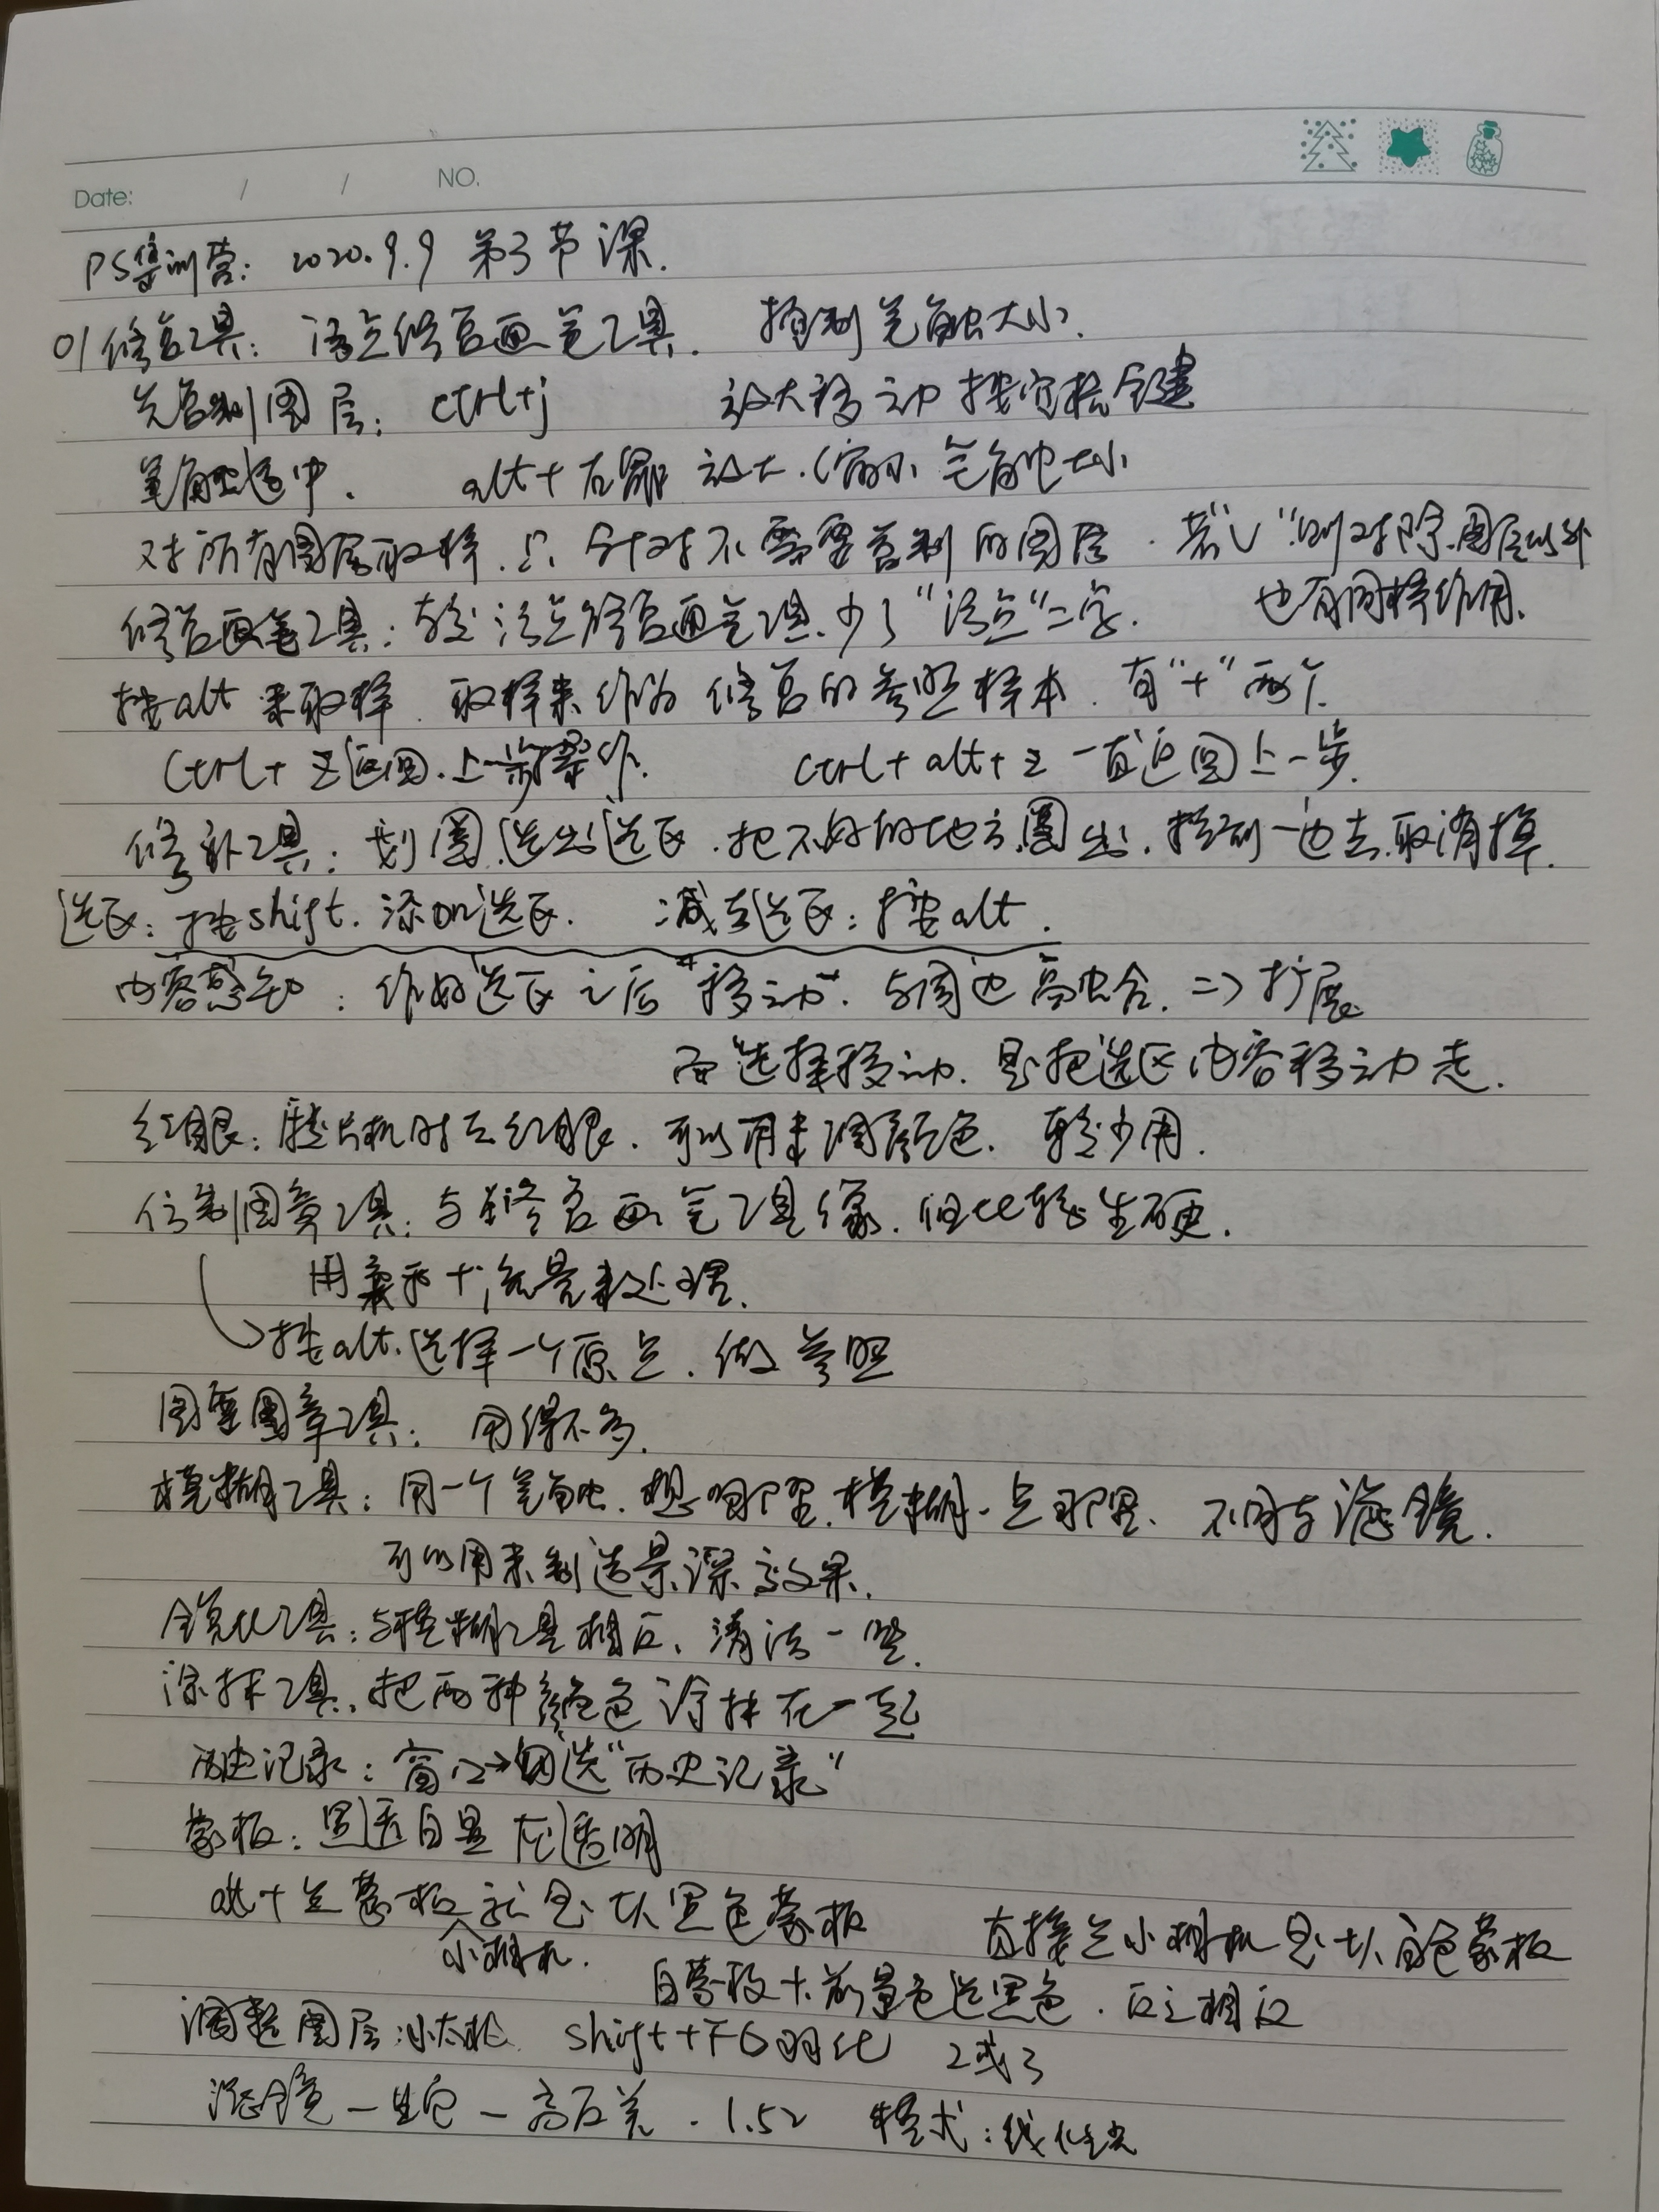 Date: / / NO.
PS集训营: 2020.9.9 第3节课.
01修复工具: 污点修复画笔工具. 控制笔触大小.
先复制图层: ctrl+j 放大移动 按空格键
笔触适中. alt+右键 放大.缩小 笔触大小
对所有图层取样. 只针对不需要复制的图层. 若"√"则对除图层以外
也有同样作用.
修复画笔工具: 较污点修复画笔工具.少了"污点"二字.
按alt 来取样. 取样来作为 修复的参照样本. 有"+" 两个
Ctrl+z返回.上一步操作. Ctrl+alt+z 一直返回上一步.
修补工具: 划圈.选出选区.把不好的地方圈出.拉到一边去.取消掉.
选区: 按shift. 添加选区. 减去选区: 按alt.
内容感知: 作好选区之后"移动". 与周边高融合. => 扩展
而选择移动. 是把选区内容移动走.
红眼: 照片机对应红眼. 可以用来调颜色. 较少用.
仿制图章工具: 与修复画笔工具像. 但比较生硬.
用柔和+流量来处理.
按alt.选择一个原点. 做参照
图案图章工具: 用得不多.
模糊工具: 用一个笔触. 想哪里.模糊.点哪里. 不同与滤镜.
可以用来制造景深效果.
锐化工具: 与模糊工具相反. 清洁一些.
涂抹工具. 把两种颜色涂抹在一起
历史记录: 窗口→勾选"历史记录"
蒙板: 黑透白显 灰透明
alt+点蒙板就是加黑色蒙板 直接点小相机是加白色蒙板
小相机.
白蒙板+前景色选黑色. 反之相反
调整图层:小太极. shift+F6羽化 2或3
滤镜-其它-高反差. 1.52 模式:线性光